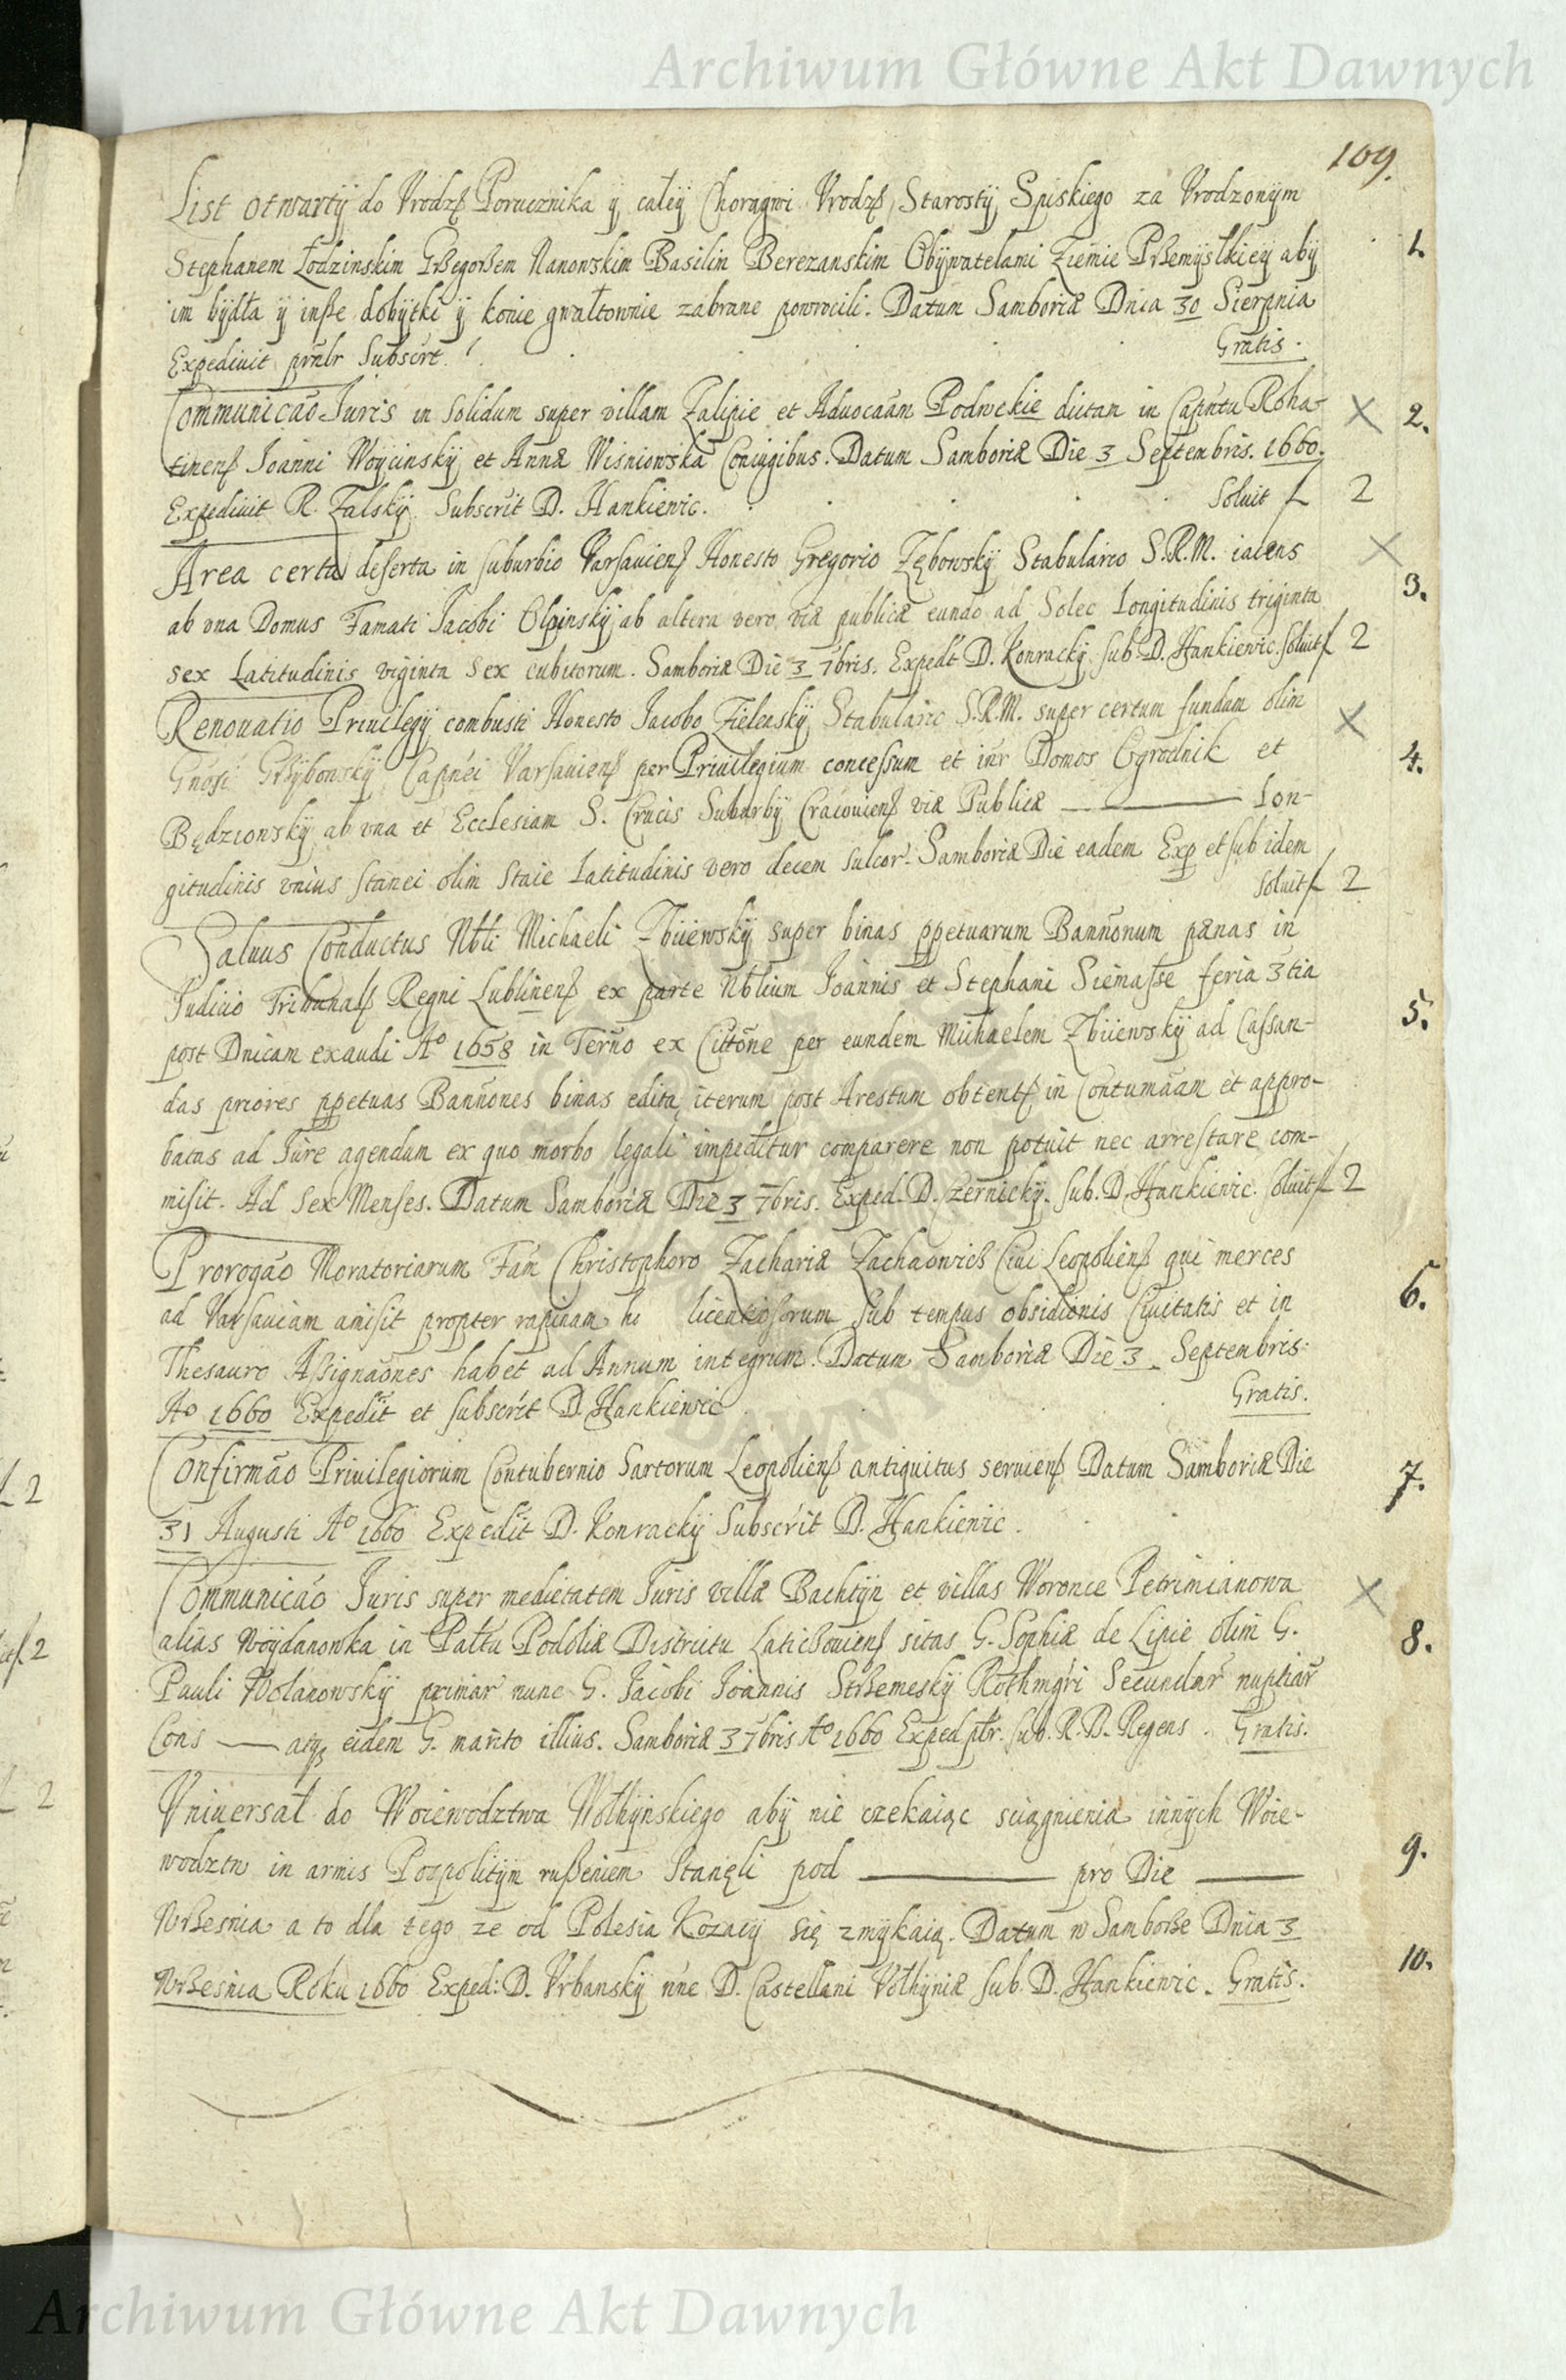 Archiwum Główne Akt Dawnych
109.
List otwarty do Vrodz Porucznika y całey Chorągwi Vrodz Starosty Spiskiego za Vrodzonym
Stephanem Łodzinskim Grzegorzem Nanowskim Basilim Berezanskim Obywatelami Ziemie Przemyslkiey aby 1.
im bydła y insze dobytki y konie gwałtownie zabrane powrocili. Datum Samboriæ Dnia 30 Sierpnia
Expediuit Subscrt. Gratis.
Communicão Iuris in solidum super villam Zalipie et Aduocaam Podwckie dictan in Capntu Roha- 2.
tinens Ioanni Woycinsky et Annæ Wisniowska Coniugibus. Datum Samboriæ Die 3 Septembris. 1660.
Expediuit R. Zalsky. Subscrit D. Hankiewic. Soluit f 2
Area certa deserta in suburbio Varsauiens Honesto Gregorio Zębowsky Stabulario S.R.M. iacens 3.
ab vna Domus Famati Iacobi Olpinsky ab altera vero via publicæ eundo ad Solec Longitudinis triginta
sex Latitudinis viginta sex cubitorum. Samboriæ Die 3 7bris. Expedt D. Konracky. sub D. Hankiewic. soluit f 2
Renouatio Priuilegy combusti Honesto Iacobo Zielensky Stabulario S.R.M. super certum fundum olim
Gnosi Grzybowsky Capnei Varsauiens per Priuilegium concessum et inr Domos Ogrodnik et 4.
Będzionsky ab vna et Ecclesiam S. Crucis Suburby Cracouiens viæ Publicæ — Lon-
gitudinis vnius stanei olim staie Latitudinis vero decem sulcor. Samboriæ Die eadem Exp et sub idem
soluit f 2
Saluus Conductus Nbli Michaeli Zbiiewsky super binas ppetuarum Bannonum pænas in
Iudicio Tribunals Regni Lublinens ex parte Nblium Ioannis et Stephani Siemasze feria 3tia
post Dnicam exaudi Ao 1658 in Terno ex Cittõne per eundem Michaelem Zbiiewsky ad Cassan- 5.
das priores ppetuas Bannones binas edita iterum post Arestum obtents in Contumaam et appro-
batas ad Iure agendum ex quo morbo legali impeditur comparere non potuit nec arrestare com-
misit. Ad sex Menses. Datum Samboriæ Die 3 7bris. Exped. D. Zernicky. sub. D. Hankiewic. soluit f 2
Prorogão Moratoriarum Fam Christophoro Zachariæ Zachaowicz Ciui Leopoliens qui merces
ad Varsauiam amisit propter rapinam licentiosorum sub tempus obsidionis Ciuitatis et in 6.
Thesauro Assignaones habet ad Annum integrum. Datum Samboriæ Die 3 Septembris.
Ao 1660 Expedit et subscrit D. Hankiewic Gratis.
Confirmão Priuilegiorum Contubernio Sartorum Leopoliens antiquitus seruiens Datum Samboriæ Die 7.
31 Augusti Ao 1660 Expedit D. Konracky Subscrit D. Hankiewic.
Communicão Iuris super medietatem Iuris villæ Bachtyn et villas Woronce Petrimianowa
alias Woydanowka in Pałtu Podoliæ Districtu Laticzouiens sitas G. Sophiæ de Lipie olim G. 8.
Pauli Wolanowsky primar nunc G. Iacobi Ioannis Strzemesky Rothmgri Secundar nuptiar
Cons — atq eidem G. marito illius. Samboriæ 3 7bris Ao 1660 Exped ptr. sub. R. D. Regens. Gratis.
Vniuersał do Woiewodztwa Wołhynskiego aby nie czekaiąc sciągnienia innych Woie-
wodztw in armis Pospolitym ruszeniem Stanęli pod — pro Die — 9.
Wrzesnia a to dla tego ze od Polesia Kozacy się zmykaią. Datum w Samborze Dnia 3
Wrzesnia Roku 1660 Exped: D. Vrbansky nne D. Castellani Vołhyniæ sub. D. Hankiewic. Gratis. 10.
Archiwum Główne Akt Dawnych